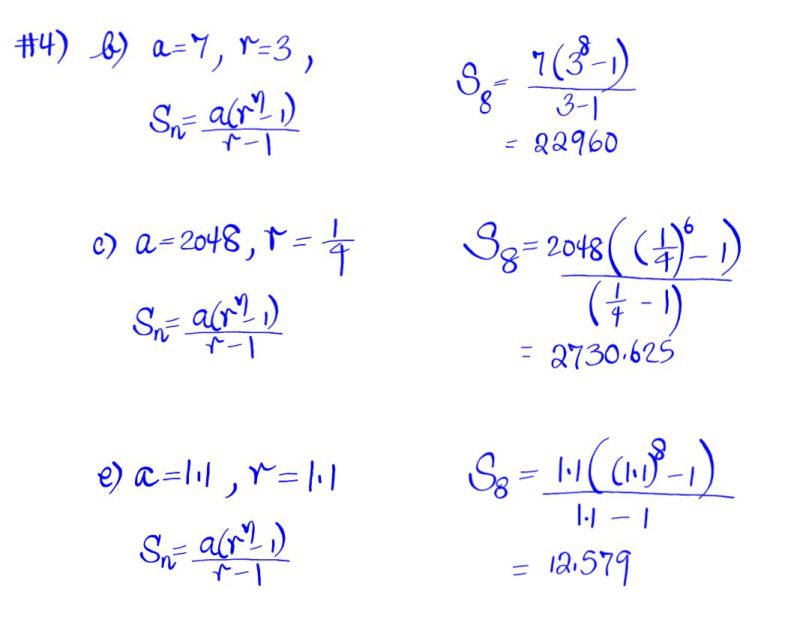 #4) b) a=7, r=3,
Sₙ= a(rⁿ-1)/r-1
S₈= 7(3⁸-1)/3-1
= 22960
c) a=2048, r= 1/4
Sₙ= a(rⁿ-1)/r-1
S₈= 2048((1/4)⁶-1)/(1/4 - 1)
= 2730.625
e) a=1.1, r=1.1
Sₙ= a(rⁿ-1)/r-1
S₈ = 1.1((1.1)⁸-1)/1.1-1
= 12.579